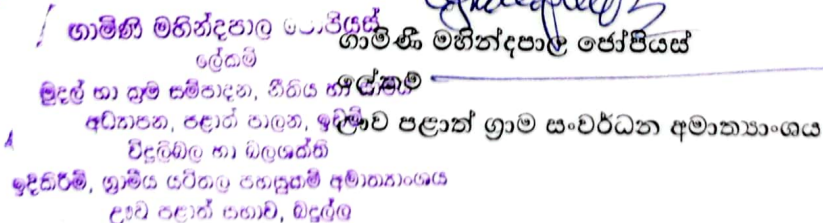 ගාමිණී මහින්දපාල ජෝපියස්
ලේකම්
මුදල් හා ක්‍රම සම්පාදන, නීතිය හා සාමය
අධ්‍යාපන, පළාත් පාලන, ඉඩම්
විදුලිබල හා බලශක්ති
ඉදිකිරීම්, ග්‍රාමීය යටිතල පහසුකම් අමාත්‍යාංශය
ඌව පළාත් සභාව, බදුල්ල
ගාමිණී මහින්දපාල ජෝපියස්
ලේකම්
ඌව පළාත් ග්‍රාම සංවර්ධන අමාත්‍යාංශය